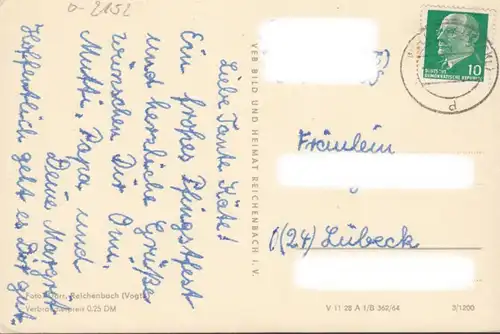 D-2152
Liebe Tante Käte!
Ein frohes Pfingstfest
und herzliche Grüße
wünschen Dir Omi,
Mutti, Papa und
Deine Margrit
Hoffentlich geht es Dir gut.
VEB BILD UND HEIMAT REICHENBACH I. V.
10
DEUTSCHE
DEMOKRATISCHE REPUBLIK
d
Fräulein
(24) Lübeck
Reichenbach (Vogtl
Verbraucherpreis 0.25 DM
V 11 28 A 1/B 362/64
3/1200